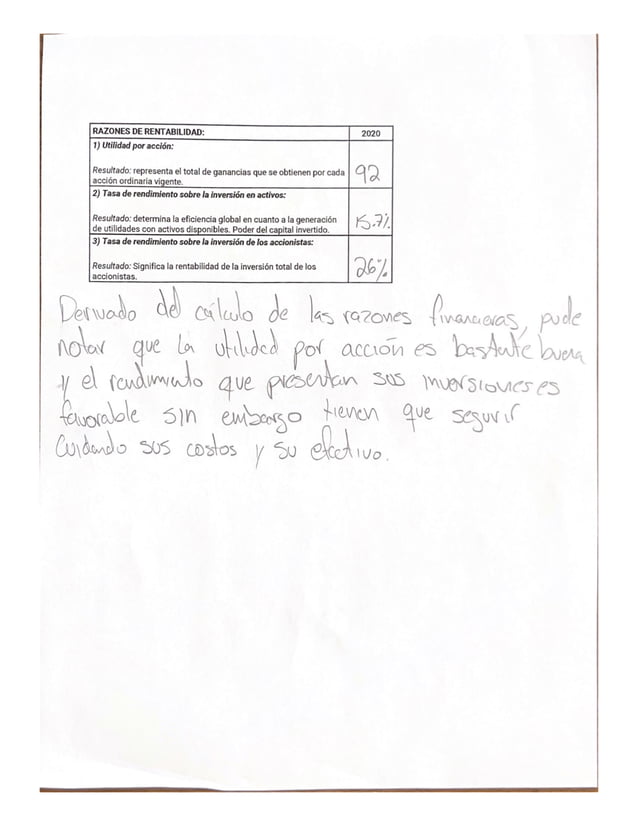 RAZONES DE RENTABILIDAD: 2020
1) Utilidad por acción:
Resultado: representa el total de ganancias que se obtienen por cada 92
acción ordinaria vigente.
2) Tasa de rendimiento sobre la inversión en activos:
Resultado: determina la eficiencia global en cuanto a la generación 15.7%
de utilidades con activos disponibles. Poder del capital invertido.
3) Tasa de rendimiento sobre la inversión de los accionistas:
Resultado: Significa la rentabilidad de la inversión total de los 26%
accionistas.
Derivado del cálculo de las razones financieras, pude
notar que la utilidad por acción es bastante buena
y el rendimiento que presentan sus inversiones es
favorable sin embargo tienen que seguir
cuidando sus costos y su efectivo.